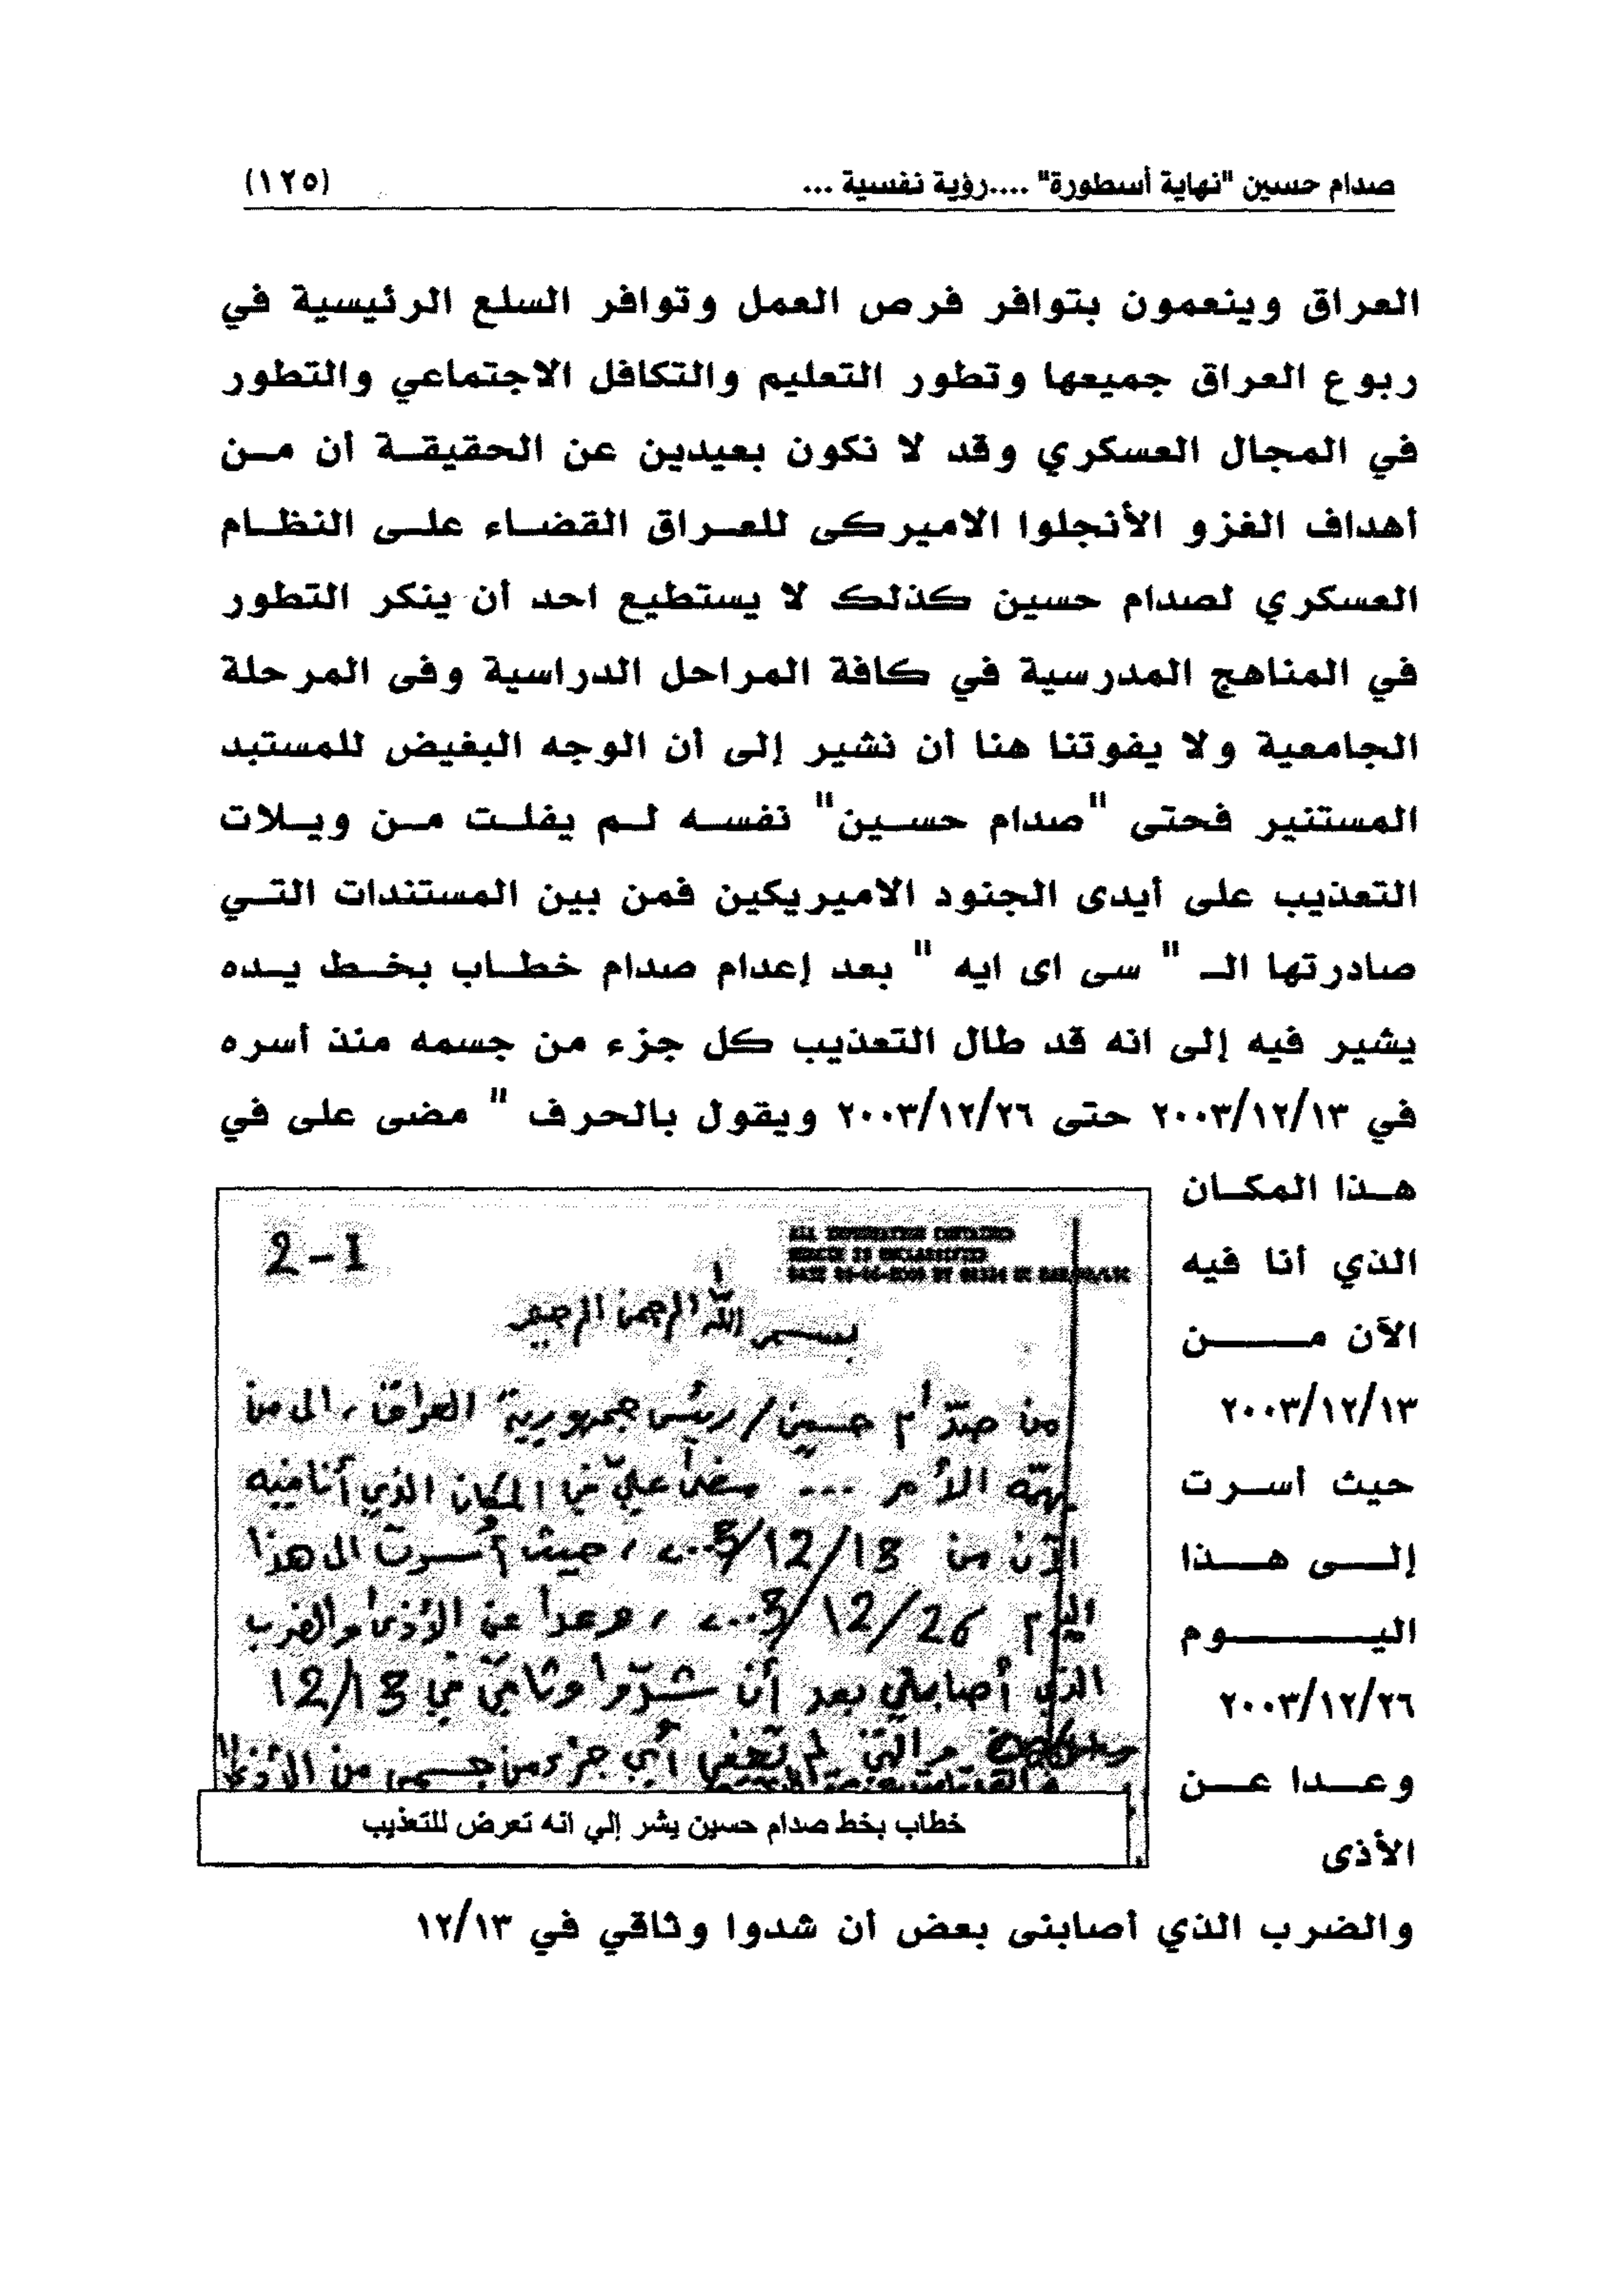 صدام حسين "نهاية أسطورة" ....رؤية نفسية ...
(١٢٥)
العراق وينعمون بتوافر فرص العمل وتوافر السلع الرئيسية في
ربوع العراق جميعها وتطور التعليم والتكافل الاجتماعي والتطور
في المجال العسكري وقد لا نكون بعيدين عن الحقيقة أن من
أهداف الغزو الأنجلوا الاميركى للعراق القضاء على النظام
العسكري لصدام حسين كذلك لا يستطيع احد أن ينكر التطور
في المناهج المدرسية في كافة المراحل الدراسية وفى المرحلة
الجامعية ولا يفوتنا هنا أن نشير إلى أن الوجه البغيض للمستبد
المستنير فحتى "صدام حسين" نفسه لم يفلت من ويلات
التعذيب على أيدى الجنود الاميريكين فمن بين المستندات التي
صادرتها الـ " سى اى ايه " بعد إعدام صدام خطاب بخط يده
يشير فيه إلى انه قد طال التعذيب كل جزء من جسمه منذ أسره
في ٢٠٠٣/١٢/١٣ حتى ٢٠٠٣/١٢/٢٦ ويقول بالحرف " مضى على في
هذا المكان
الذي أنا فيه
الآن من
٢٠٠٣/١٢/١٣
حيث أسرت
إلى هذا
اليوم
٢٠٠٣/١٢/٢٦
وعدا عن
الأذى
والضرب الذي أصابنى بعض أن شدوا وثاقي في ١٢/١٣
2-1
ALL INFORMATION CONTAINED
HEREIN IS UNCLASSIFIED
بسم الله الرحمن الرحيم
من صدّام حسين / رئيس جمهورية العراق، الى من
يهمّه الأمر ... مضى عليّ في المكان الذي أنا فيه
الآن من 13/12/2003، حيث أُسرت الى هذا
اليوم 26/12/2003، وعدا عن الأذى والضرب
الذي أصابني بعد أن شدّوا وثاقي في 12/13
والتي لم تخفى أي جزء من جسمي من الأذى
خطاب بخط صدام حسين يشر إلي انه تعرض للتعذيب